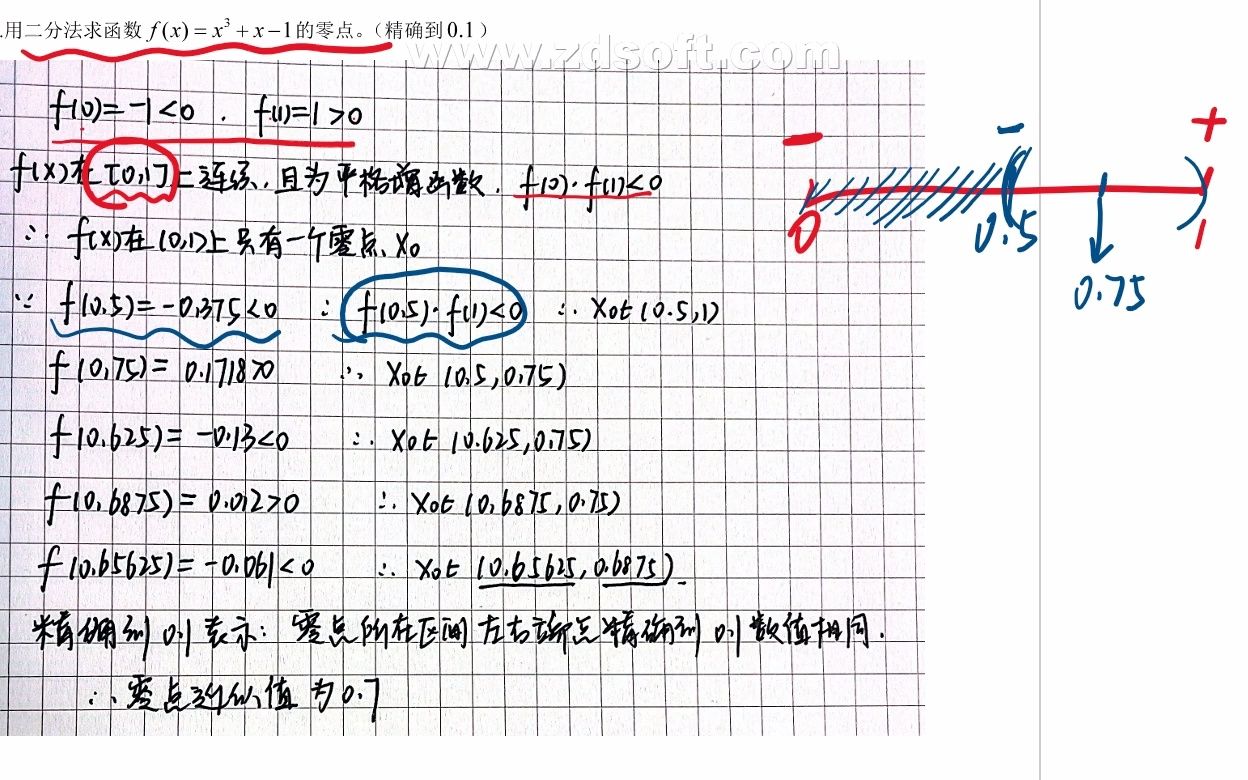 .用二分法求函数 f(x)=x³+x−1的零点。（精确到0.1）
www.zdsoft.com.cn
f(0)=-1<0 . f(1)=1>0
f(x)在[0,1]上连续,且为严格增函数, f(0)·f(1)<0
∴ f(x)在(0,1)上只有一个零点、x₀
∵ f(0.5)=-0.375<0 ∴ f(0.5)·f(1)<0 ∴ x₀∈(0.5,1)
f(0.75)= 0.1718>0 ∴ x₀∈(0.5,0.75)
f(0.625)= -0.13<0 ∴ x₀∈(0.625,0.75)
f(0.6875)= 0.012>0 ∴ x₀∈(0.6875,0.75)
f(0.65625)= -0.061<0 ∴ x₀∈(0.65625,0.6875).
精确到 0.1 表示: 零点所在区间 左右端点精确到 0.1 数值相同.
∴ 零点近似值为0.7
- - +
0 0.5 1
0.75